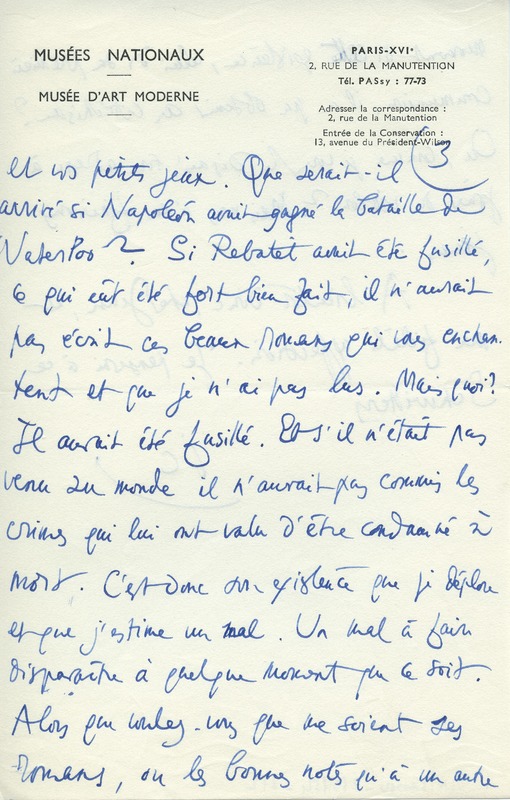 MUSÉES NATIONAUX
MUSÉE D'ART MODERNE
PARIS-XVIe
2, RUE DE LA MANUTENTION
Tél. PASsy : 77-73
Adresser la correspondance :
2, rue de la Manutention
Entrée de la Conservation :
13, avenue du Président-Wilson
(3
et vos petits jeux. Que serait-il
arrivé si Napoléon avait gagné la bataille de
Waterloo ? Si Rebatet avait été fusillé,
ce qui eût été fort bien fait, il n'aurait
pas écrit ces beaux romans qui vous enchan-
tent et que je n'ai pas lus. Mais quoi ?
Il aurait été fusillé. Et s'il n'était pas
venu au monde il n'aurait pas commis les
crimes qui lui ont valu d'être condamné à
mort. C'est donc son existence que je déplore
et que j'estime un mal. Un mal à faire
disparaître à quelque moment que ce soit.
Alors que voulez-vous que me soient ses
romans, ou les bonnes notes qu'à un autre